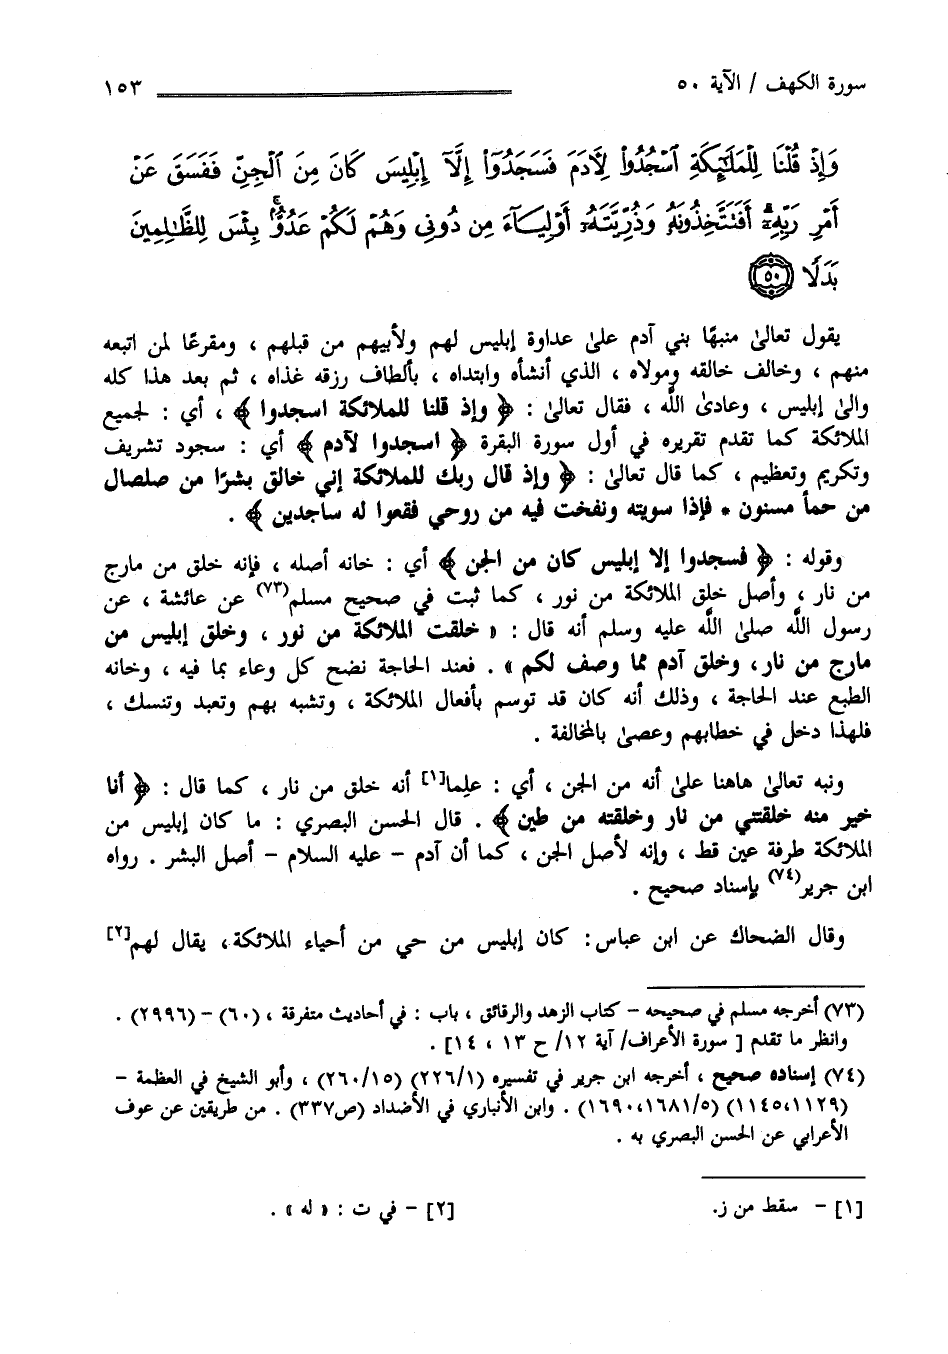 سورة الكهف / الآية ٥٠ ١٥٣
وَإِذْ قُلْنَا لِلْمَلَٰٓئِكَةِ ٱسْجُدُوا۟ لِءَادَمَ فَسَجَدُوٓا۟ إِلَّآ إِبْلِيسَ كَانَ مِنَ ٱلْجِنِّ فَفَسَقَ عَنْ
أَمْرِ رَبِّهِۦٓ ۗ أَفَتَتَّخِذُونَهُۥ وَذُرِّيَّتَهُۥٓ أَوْلِيَآءَ مِن دُونِى وَهُمْ لَكُمْ عَدُوٌّۢ ۚ بِئْسَ لِلظَّٰلِمِينَ
بَدَلًا ٥٠
يقول تعالىٰ منبهًا بني آدم علىٰ عداوة إبليس لهم ولأبيهم من قبلهم ، ومقرعًا لمن اتبعه
منهم ، وخالف خالقه ومولاه ، الذي أنشأه وابتداه ، بألطاف رزقه غذاه ، ثم بعد هذا كله
والىٰ إبليس ، وعادىٰ اللَّه ، فقال تعالىٰ : ﴿ وإذ قلنا للملائكة اسجدوا ﴾ ، أي : لجميع
الملائكة كما تقدم تقريره في أول سورة البقرة ﴿ اسجدوا لآدم ﴾ أي : سجود تشريف
وتكريم وتعظيم ، كما قال تعالىٰ : ﴿ وإذ قال ربك للملائكة إني خالق بشرًا من صلصال
من حمأ مسنون * فإذا سويته ونفخت فيه من روحي فقعوا له ساجدين ﴾ .
وقوله : ﴿ فسجدوا إلا إبليس كان من الجن ﴾ أي : خانه أصله ، فإنه خلق من مارج
من نار ، وأصل خلق الملائكة من نور ، كما ثبت في صحيح مسلم(٧٣) عن عائشة ، عن
رسول اللَّه صلىٰ اللَّه عليه وسلم أنه قال : « خلقت الملائكة من نور ، وخلق إبليس من
مارج من نار، وخلق آدم مما وصف لكم » . فعند الحاجة نضح كل وعاء بما فيه ، وخانه
الطبع عند الحاجة ، وذلك أنه كان قد توسم بأفعال الملائكة ، وتشبه بهم وتعبد وتنسك ،
فلهذا دخل في خطابهم وعصىٰ بالمخالفة .
ونبه تعالىٰ هاهنا علىٰ أنه من الجن ، أي : علِما[١] أنه خلق من نار ، كما قال : ﴿ أنا
خير منه خلقتني من نار وخلقته من طين ﴾ . قال الحسن البصري : ما كان إبليس من
الملائكة طرفة عين قط ، وإنه لأصل الجن ، كما أن آدم – عليه السلام – أصل البشر . رواه
ابن جرير(٧٤) بإسناد صحيح .
وقال الضحاك عن ابن عباس: كان إبليس من حي من أحياء الملائكة، يقال لهم[٢]
(٧٣) أخرجه مسلم في صحيحه – كتاب الزهد والرقائق ، باب : في أحاديث متفرقة ، (٦٠) – (٢٩٩٦) .
وانظر ما تقدم [ سورة الأعراف/ آية ١٢/ ح ١٣ ، ١٤] .
(٧٤) إسناده صحيح ، أخرجه ابن جرير في تفسيره (٢٢٦/١) (٢٦٠/١٥) ، وأبو الشيخ في العظمة –
(١١٤٥،١١٢٩) (١٦٩٠،١٦٨١/٥) . وابن الأنباري في الأضداد (ص٣٣٧) . من طريقين عن عوف
الأعرابي عن الحسن البصري به .
[١] – سقط من ز. [٢] – في ت : « له » .